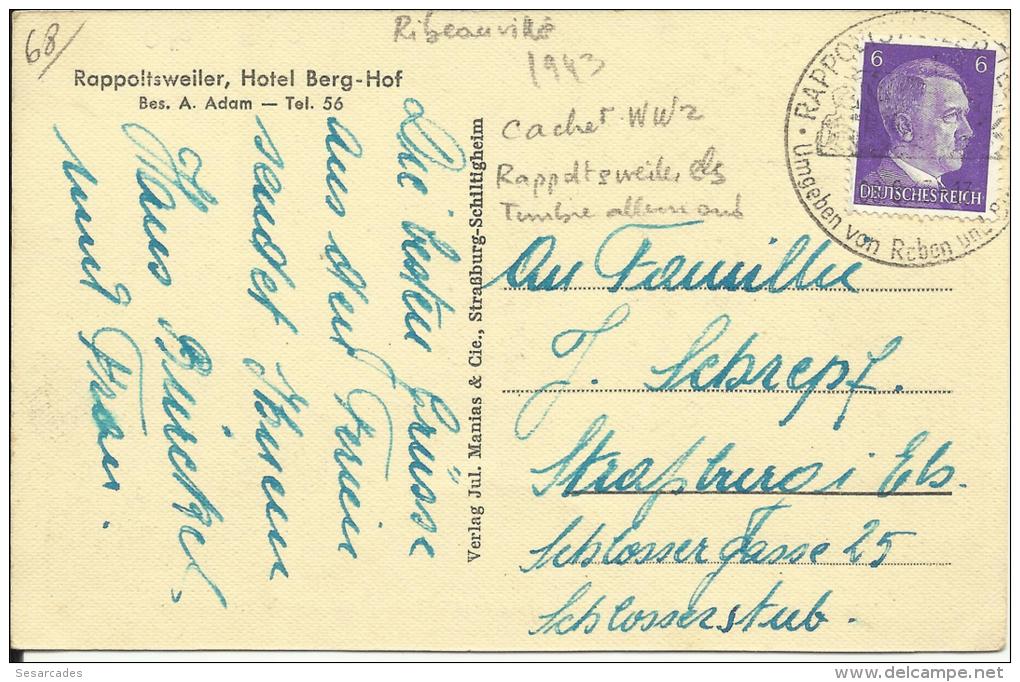 68
Ribeauvillé
1943
Rappoltsweiler, Hotel Berg-Hof
Bes. A. Adam — Tel. 56
Cachet WW2
Rappoltsweiler Els
Timbre allemand
6 6
DEUTSCHES REICH
RAPPOLTSWEILER
Umgeben von Reben und
Die besten Grüsse
aus den Ferien
sendet Ihnen
H. Hans
und Frau.
Verlag Jul. Manias & Cie., Straßburg-Schiltigheim
An Familie
J. Schrepf.
Straßburg i Els.
Schlossergasse 25
Schlosserstub.
Sesarcades
www.delcampe.net